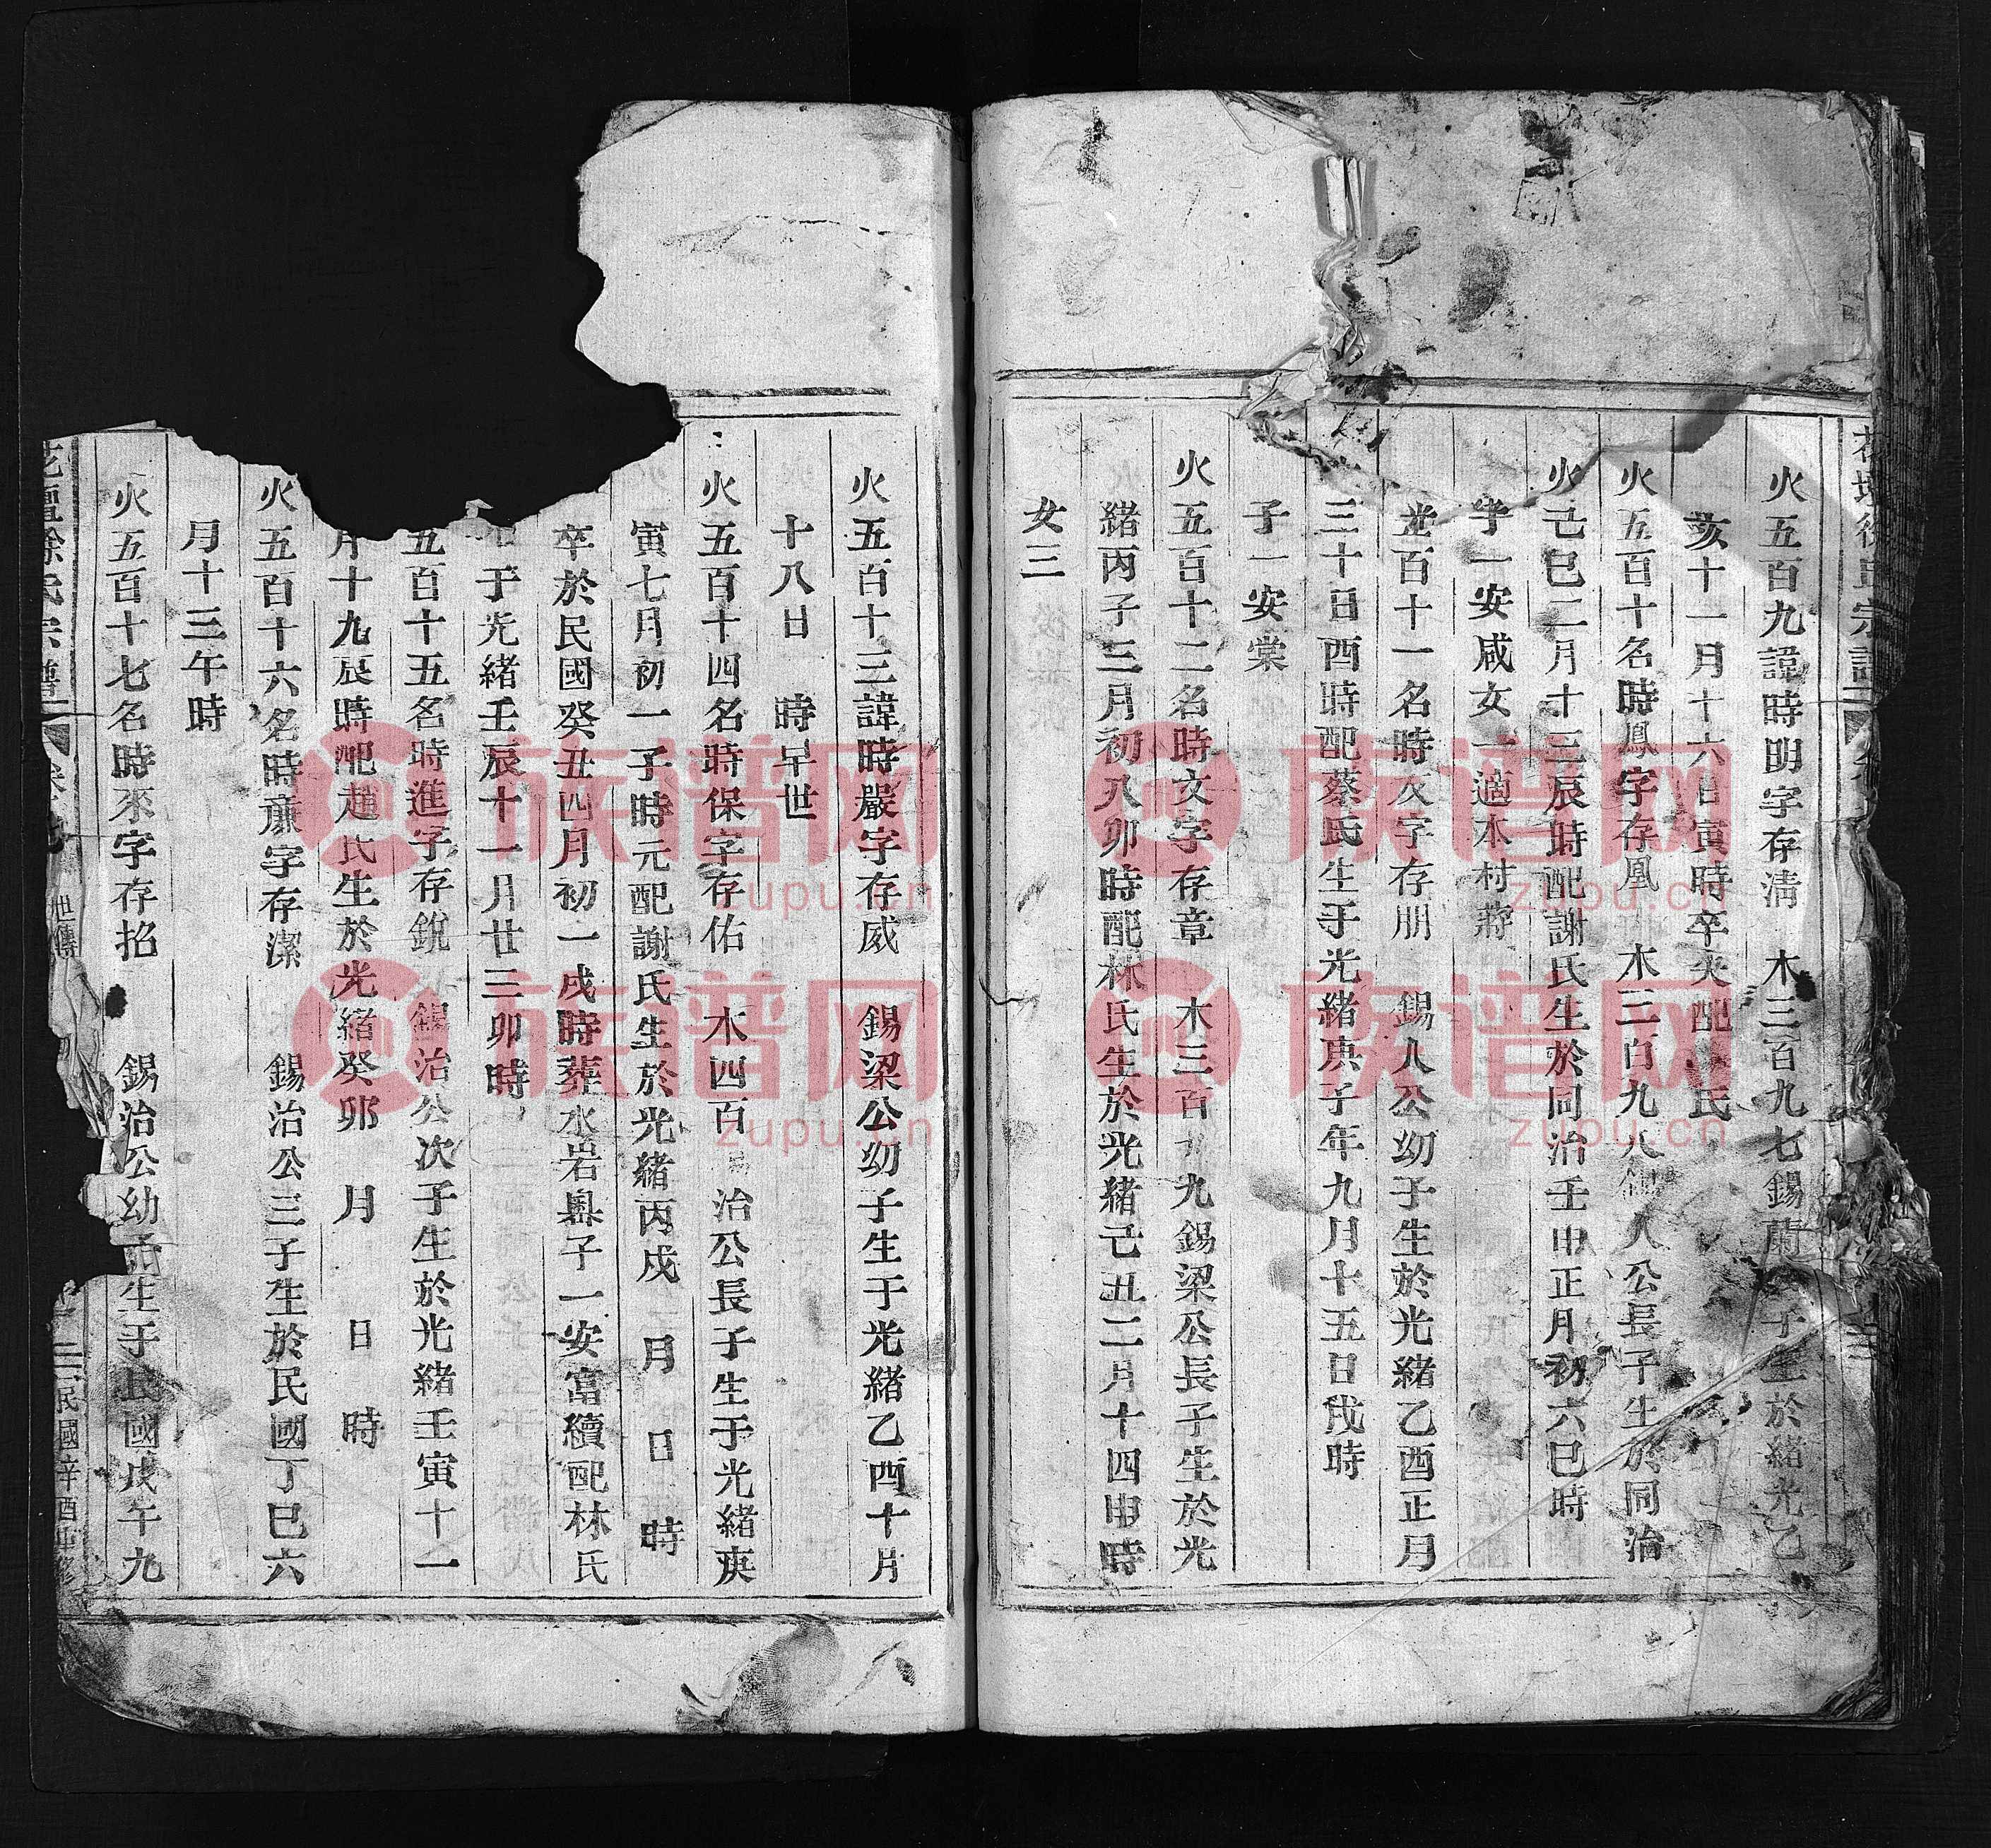 火五百九諱時明字存清　木三百九七錫蘭公子生於緒光乙
亥十一月十六日寅時卒失配　氏
火五百十名時鳳字存凰　木三百九八錫人公長子生於同治
己巳二月十三辰時配謝氏生於同治壬申正月初六巳時
子一安咸女一適本村蔣
火五百十一名時次字存朋　錫人公幼子生於光緒乙酉正月
三十日酉時配蔡氏生于光緒庚子年九月十五日戌時
子一安棠
火五百十二名時文字存章　木三百九九錫梁公長子生於光
緒丙子三月初八卯時配林氏生於光緒己丑二月十四申時
女三
火五百十三諱時嚴字存威　錫梁公幼子生于光緒乙酉十月
十八日　時早世
火五百十四名時保字存佑　木四百　治公長子生于光緒庚
寅七月初一子時元配謝氏生於光緒丙戌　月　日　時
卒於民國癸丑四月初一戌時葬水岩奧子一安富續配林氏
生于光緒壬辰十一月廿三卯時
五百十五名時進字存銳　錫治公次子生於光緒壬寅十一
月十九辰時配趙氏生於光緒癸卯　月　日　時
火五百十六名時廉字存潔　錫治公三子生於民國丁巳六
月十三午時
火五百十七名時來字存招　錫治公幼子生于民國戊午九
花壇徐氏宗譜
世傳
民國辛酉重修
族谱网
zupu.cn
族谱网
zupu.cn
族谱网
zupu.cn
族谱网
zupu.cn